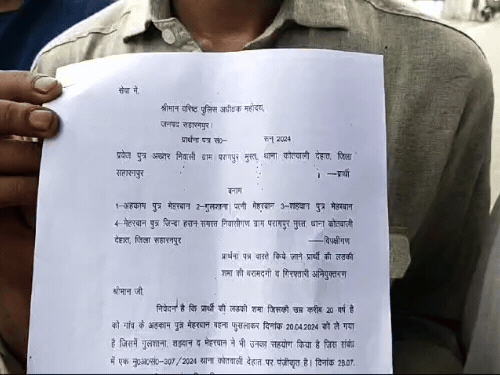 सेवा में,
श्रीमान वरिष्ठ पुलिस अधीक्षक महोदय,
जनपद सहारनपुर।
प्रार्थना पत्र सं0- सन् 2024
प्रवेज पुत्र अख्तर निवासी ग्राम परागपुर मुस्त, थाना कोतवाली देहात, जिला
सहारनपुर —प्रार्थी
बनाम
1-अहकाम पुत्र मेहरबान 2-गुलशाना पत्नी मेहरबान 3-शहवान पुत्र मेहरबान
4-मेहरबान पुत्र जिन्दा हसन समस्त निवासीगण ग्राम परागपुर मुस्त थाना कोतवाली
देहात, जिला सहारनपुर —विपक्षीगण
प्रार्थना पत्र वास्ते किये जाने प्रार्थी की लडकी
शमा की बरामदगी व गिरफ्तारी अभियुक्तगण
श्रीमान जी,
निवेदन है कि प्रार्थी की लडकी शमा जिसकी उम्र करीब 20 वर्ष है
को गांव के अहकाम पुत्र मेहरबान बहला फुसलाकर दिनांक 20.04.2024 को ले गया
है जिसमें गुलशाना, शहवान व मेहरबान ने भी उनका सहयोग किया है जिस संबंध
में एक मु0अ0सं0-307/2024 थाना कोतवाली देहात पर पंजीकृत है। दिनांक 28.07.